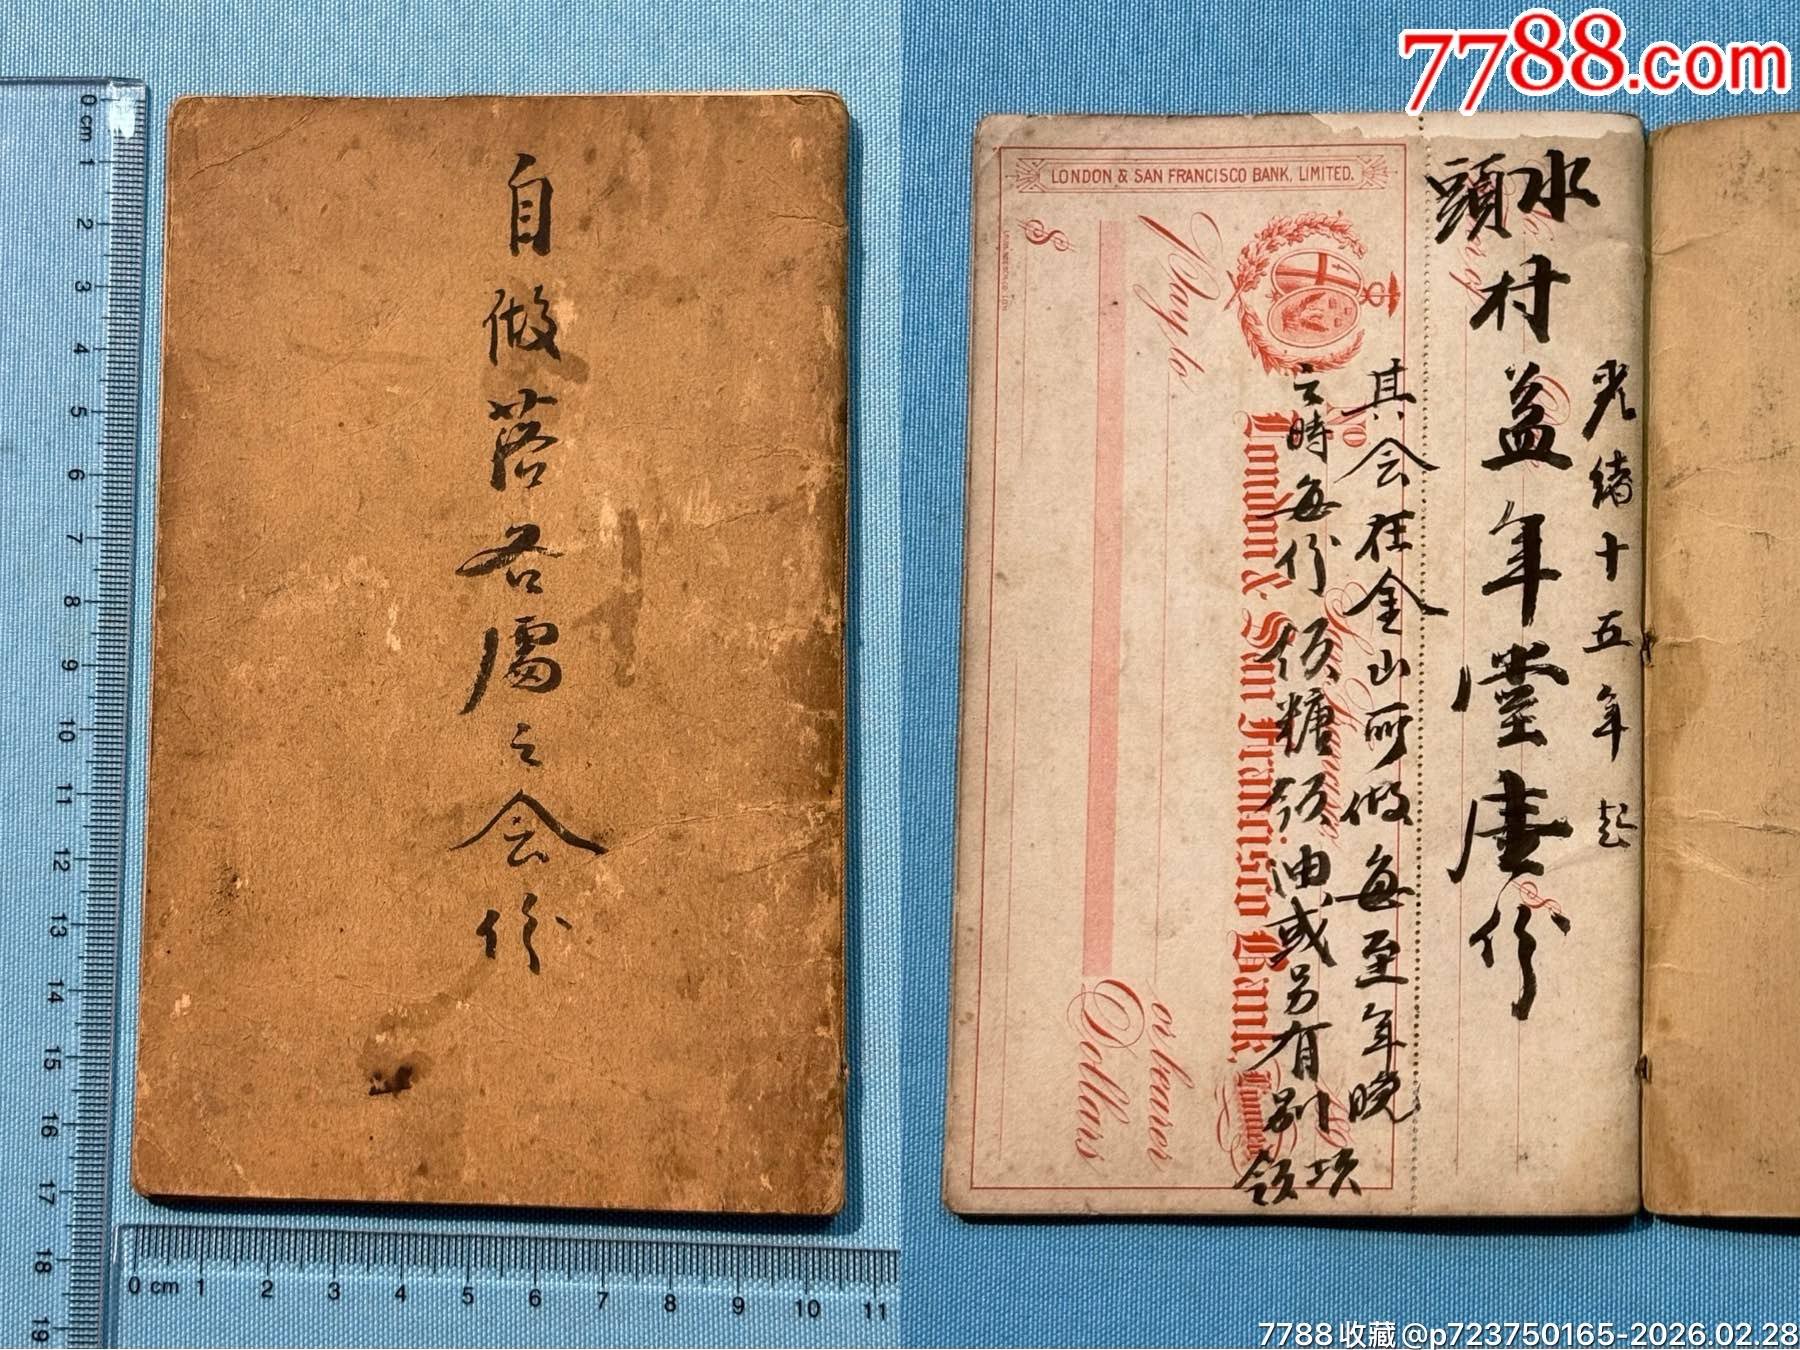 自做落各處之会份
7788.com
光緒十五年起
水頭村益年堂壹份
其会在金山所做每至年晚
之時每份領糖領油或另有别項領
LONDON & SAN FRANCISCO BANK, LIMITED.
No
London & San Francisco Bank, Limited
Pay to
or bearer
$
Dollars
0 cm 1 2 3 4 5 6 7 8 9 10 11 12 13 14 15 16 17 18 19
0 cm 1 2 3 4 5 6 7 8 9 10 11
7788收藏@p723750165-2026.02.28